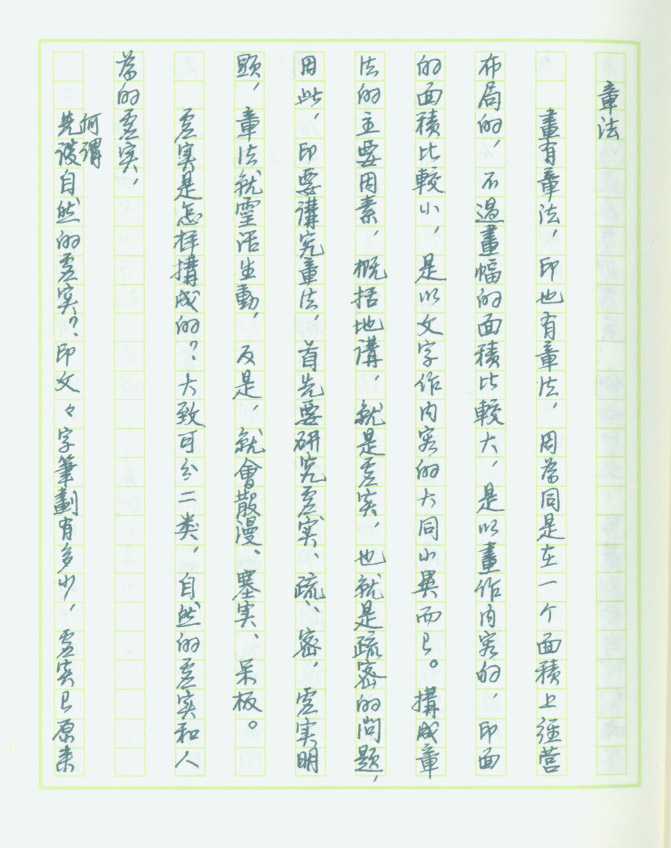 章法
畫有章法，印也有章法，因為同是在一个面積上經营
布局的，不過畫幅的面積比較大，是以畫作内容的，印面
的面積比較小，是以文字作内容的大同小異而已。構成章
法的主要因素，概括地講，就是虚实，也就是疏密的问题，
因此，印要講究章法，首先要研究虚实、疏、密，虚实明
顕，章法就靈活生動，反是，就會散漫、塞实、呆板。
虚实是怎样構成的？大致可分二类，自然的虚实和人
為的虚实，
何謂
先谈自然的虚实？印文々字筆劃有多少，虚实已原来